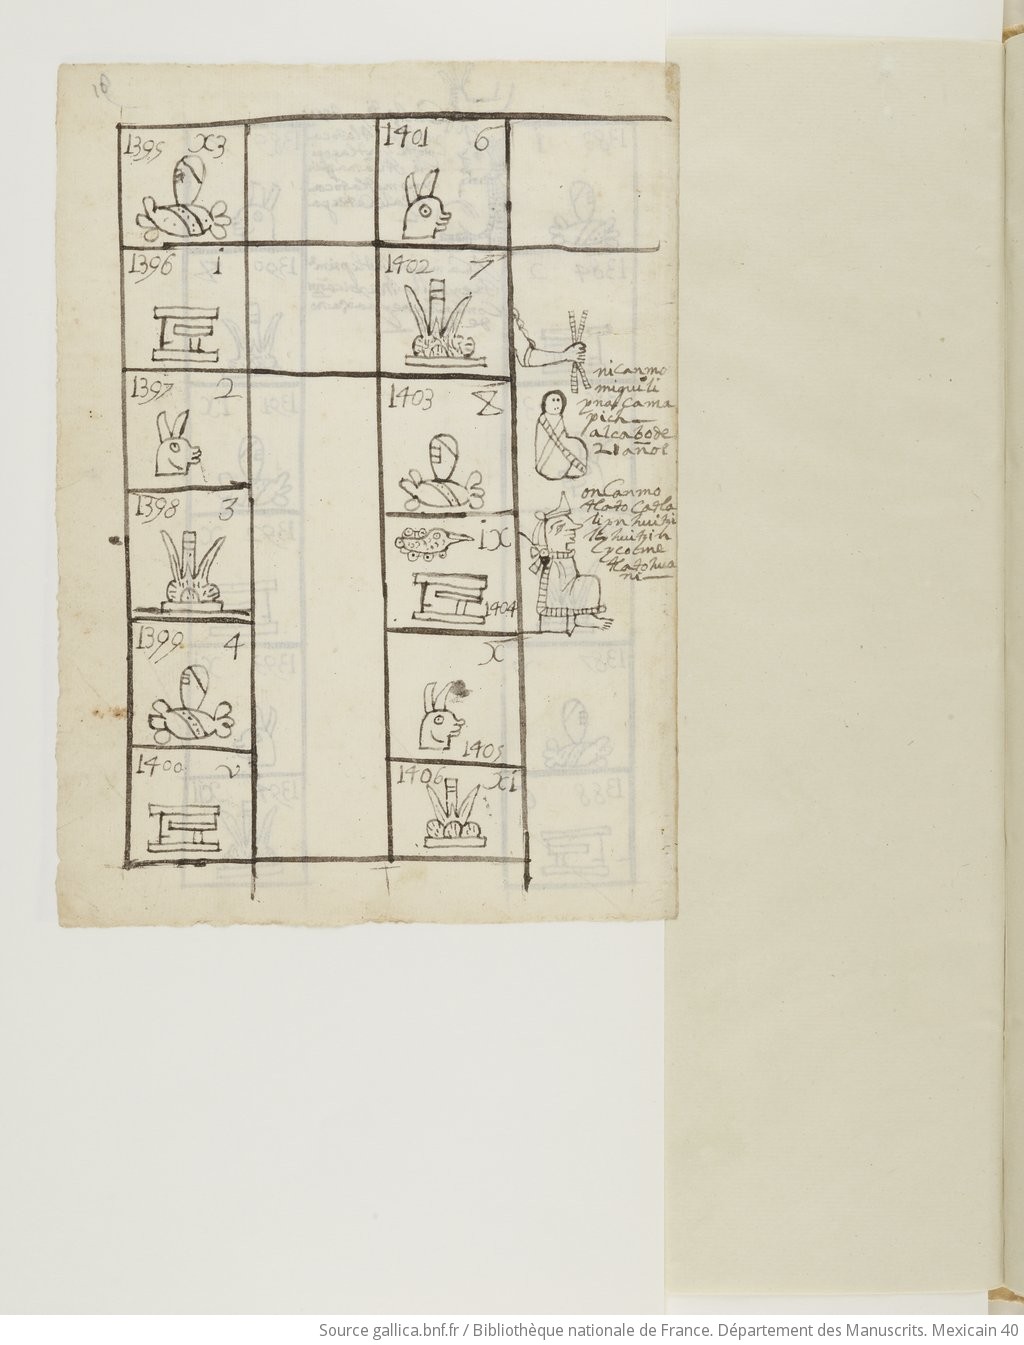 1395 x3
1396 i
1397 2
1398 3
1399 4
1400 v
1401 6
1402 7
1403 8
ix
1404
x
1405
1406 xi
nican mo
miquili
yn açama
pich
alcabo de
21 años
oncan mo
tlatocatla
li yn huitzi
huitzin
tlatohua
ni
Source gallica.bnf.fr / Bibliothèque nationale de France. Département des Manuscrits. Mexicain 40